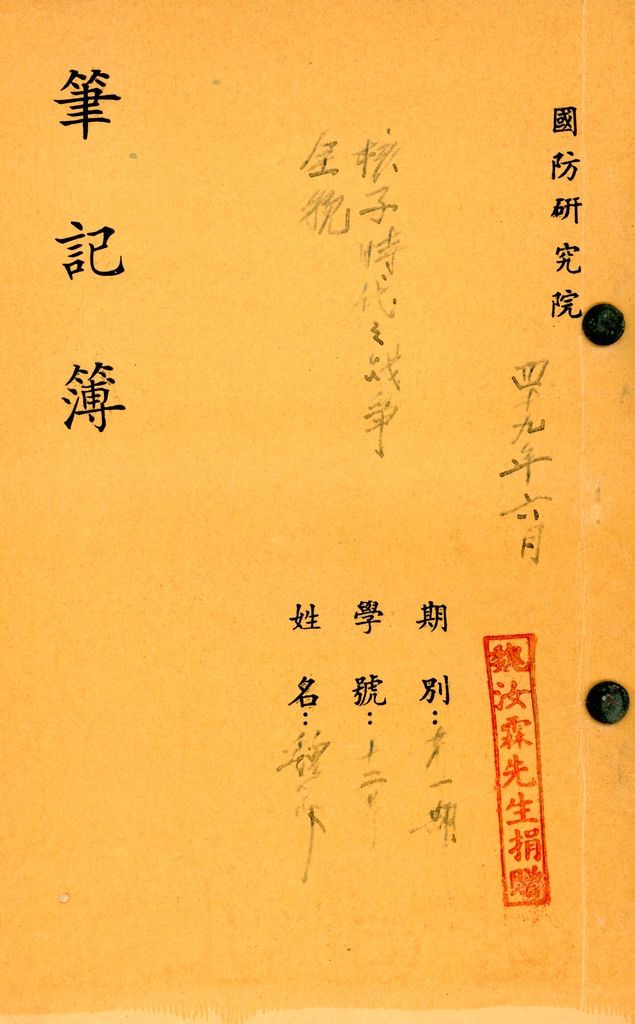 國防研究院
四十九年六月
魏汝霖先生捐贈
期別：第一期
學號：十二号
核子時代之戰爭
姓名：
筆記簿